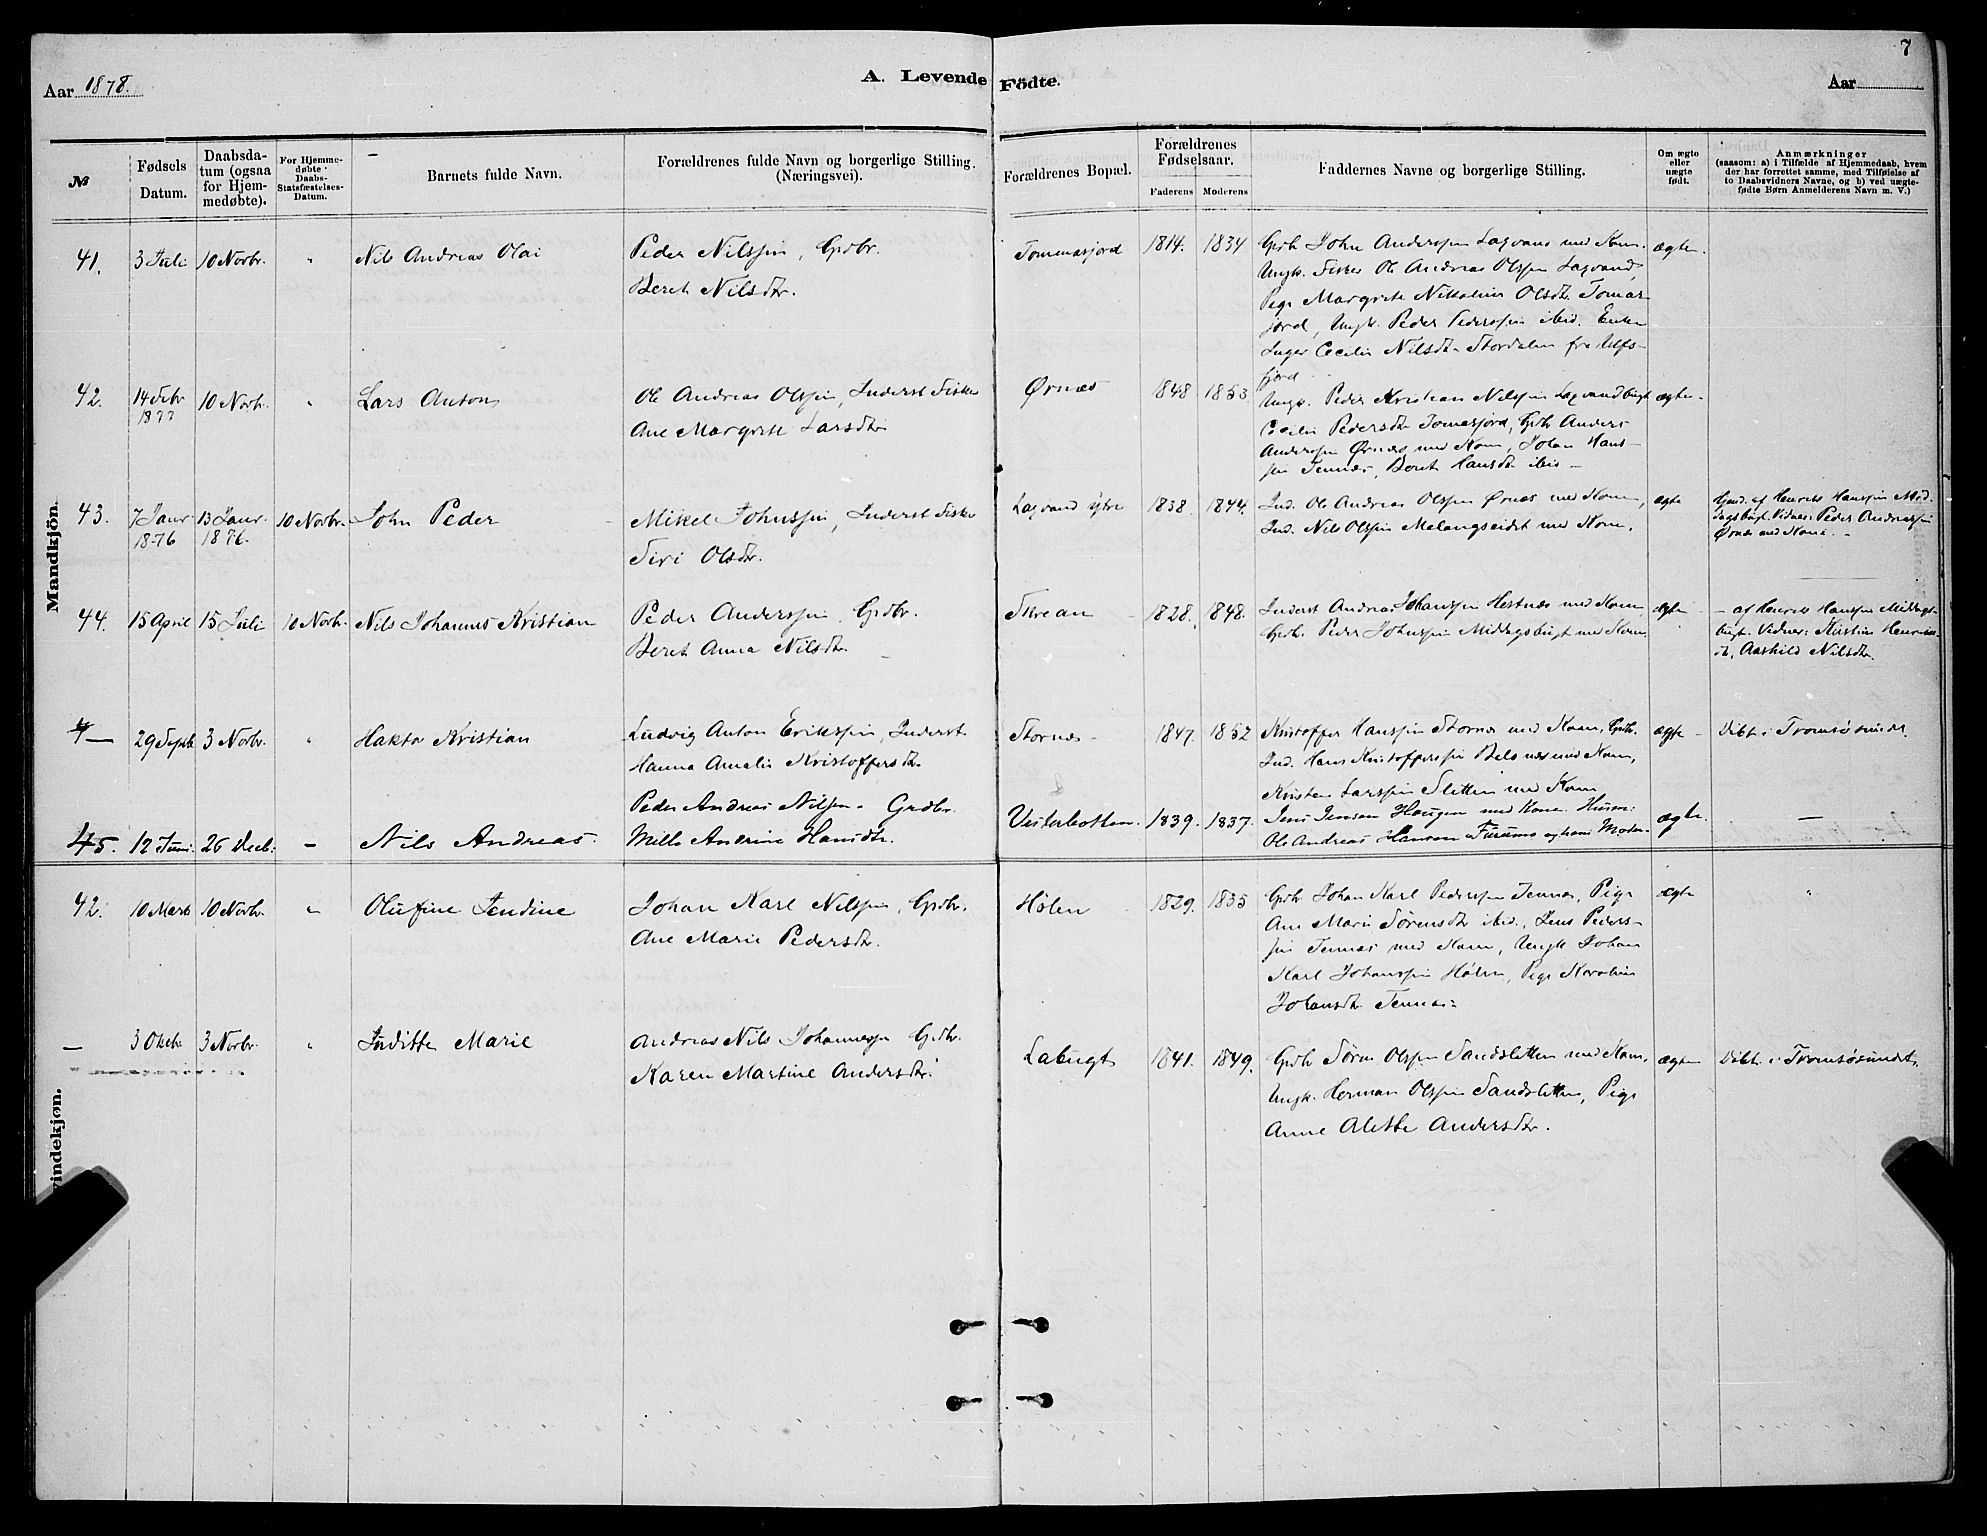 Aar 1878.
A. Levende Födte.
Aar
7
№
Fødsels Datum.
Daabsdatum (ogsaa for Hjemmedøbte).
For Hjemmedøbte Daabs-Statsfæstelses-Datum.
Barnets fulde Navn.
Forældrenes fulde Navn og borgerlige Stilling. (Næringsvei).
Forældrenes Bopæl.
Forældrenes Fødselsaar.
Faderens Moderens
Faddernes Navne og borgerlige Stilling.
Om ægte eller uægte født.
Anmærkninger
(saasom: a) i Tilfælde af Hjemmedaab, hvem
der har forrettet samme, med Tilføielse af
to Daabsvidners Navne, og b) ved uægte-
fødte Børn Anmelderens Navn m. V.)
Mandkjøn.
41. 3 Juli 10 Novbr. " Nils Andreas Olai
Peder Nilssen, Grdbr.
Beret Nilsdtr.
Tommasjord 1814. 1834
Grdb. John Anderssen Lagvand med Kone.
Ungk. Fisker Ole Andreas Olssen Lagvand,
Pige Margrete Nikoline Olsdtr Tomas-
jord, Ungk. Peder Pederssen ibid. Enken
Inger Cecilie Nilsdtr Stordalen fra Ulfs-
fjord
ægte.
42. 14 Febr 1877 10 Novbr. " Lars Anton
Ole Andreas Olssen, Inderst Fisker
Ane Margrete Larsdtr
Ørnæs 1848 1853
Ungk. Peder Kristian Nilssen Lagvandbugt
Cecilie Pedersdtr Tomasjord, Grdb Anders
Anderssen Ørnæs med Kone, Johan Hans-
sen Tennæs, Beret Hansdtr ibid -
ægte.
43. 7 Janr 1876 13 Janr. 1876. 10 Novbr. John Peder
Mikel Johnssen, Inderst Fisker
Siri Olsdtr.
Lagvand ytre 1838. 1844.
Ind. Ole Andreas Olssen Ørnæs med Kone,
Ind. Nils Olssen Malangseidet med Kone.
ægte
Hjmd. af Henrik Hanssen Mid-
dagsbugt. Vidner: Peder Andreassen
Ørnæs med Kone. -
44. 15 April 15 Juli 10 Novbr. Nils Johannes Kristian
Peder Anderssen, Grdbr.
Beret Anna Nilsdtr.
1828. 1848.
Inderst Andreas Johanssen Hestnæs med Kone,
Grdb. Peder Johnssen Middagsbugt med Kone.
ægte
- af Henrik Hanssen Middags-
bugt. Vidner: Kirstine Henriks-
dtr, Aashild Nilsdtr.
— 29 Septbr 3 Novbr. " Hakto Kristian
Ludvig Anton Erikssen, Inderst.
Hanna Amalie Kristoffersdtr.
Stornæs - 1847. 1852
Kristoffer Hanssen Stornæs med Kone, Grdb.
Ind. Hans Kristofferssen Belsnæs med Kone,
Kristen Larssen Sletten med Kone
ægte - Døbt i Tromsøsundet.
45. 12 Juni. 26 Decb: - Nils Andreas.
Peder Andreas Nilsen. Grdbr.
Mille Andrine Hansdtr.
Vesterbotten. 1839. 1837.
Jens Jensen Haugen med Kone. Husm:
Ole Andreas Hansen Furumo og hans Moder
ægte. —
Kvindekjøn.
42. 10 Marts 10 Novbr. " Olufine Jendine
Johan Karl Nilssen, Grdbr.
Ane Marie Pedersdtr.
Holen 1829. 1835
Grdb Johan Karl Pederssen Tennæs, Pige
Ane Marie Sørensdtr ibid., Jens Peders-
sen Tennæs med Kone, Ungk Johan
Karl Johanssen Holen, Pige Karoline
Johansdtr Tennæs.
ægte "
— 3 Oktb. 3 Novbr. " Juditte Marie
Andreas Nils Johannessen Grdbr.
Karen Martine Andersdtr.
Labugt 1841. 1849.
Grdb Søren Olssen Sandsletten med Kone,
Ungk. Herman Olssen Sandsletten, Pige
Anne Alette Andersdtr.
ægte Døbt i Tromsøsundet.